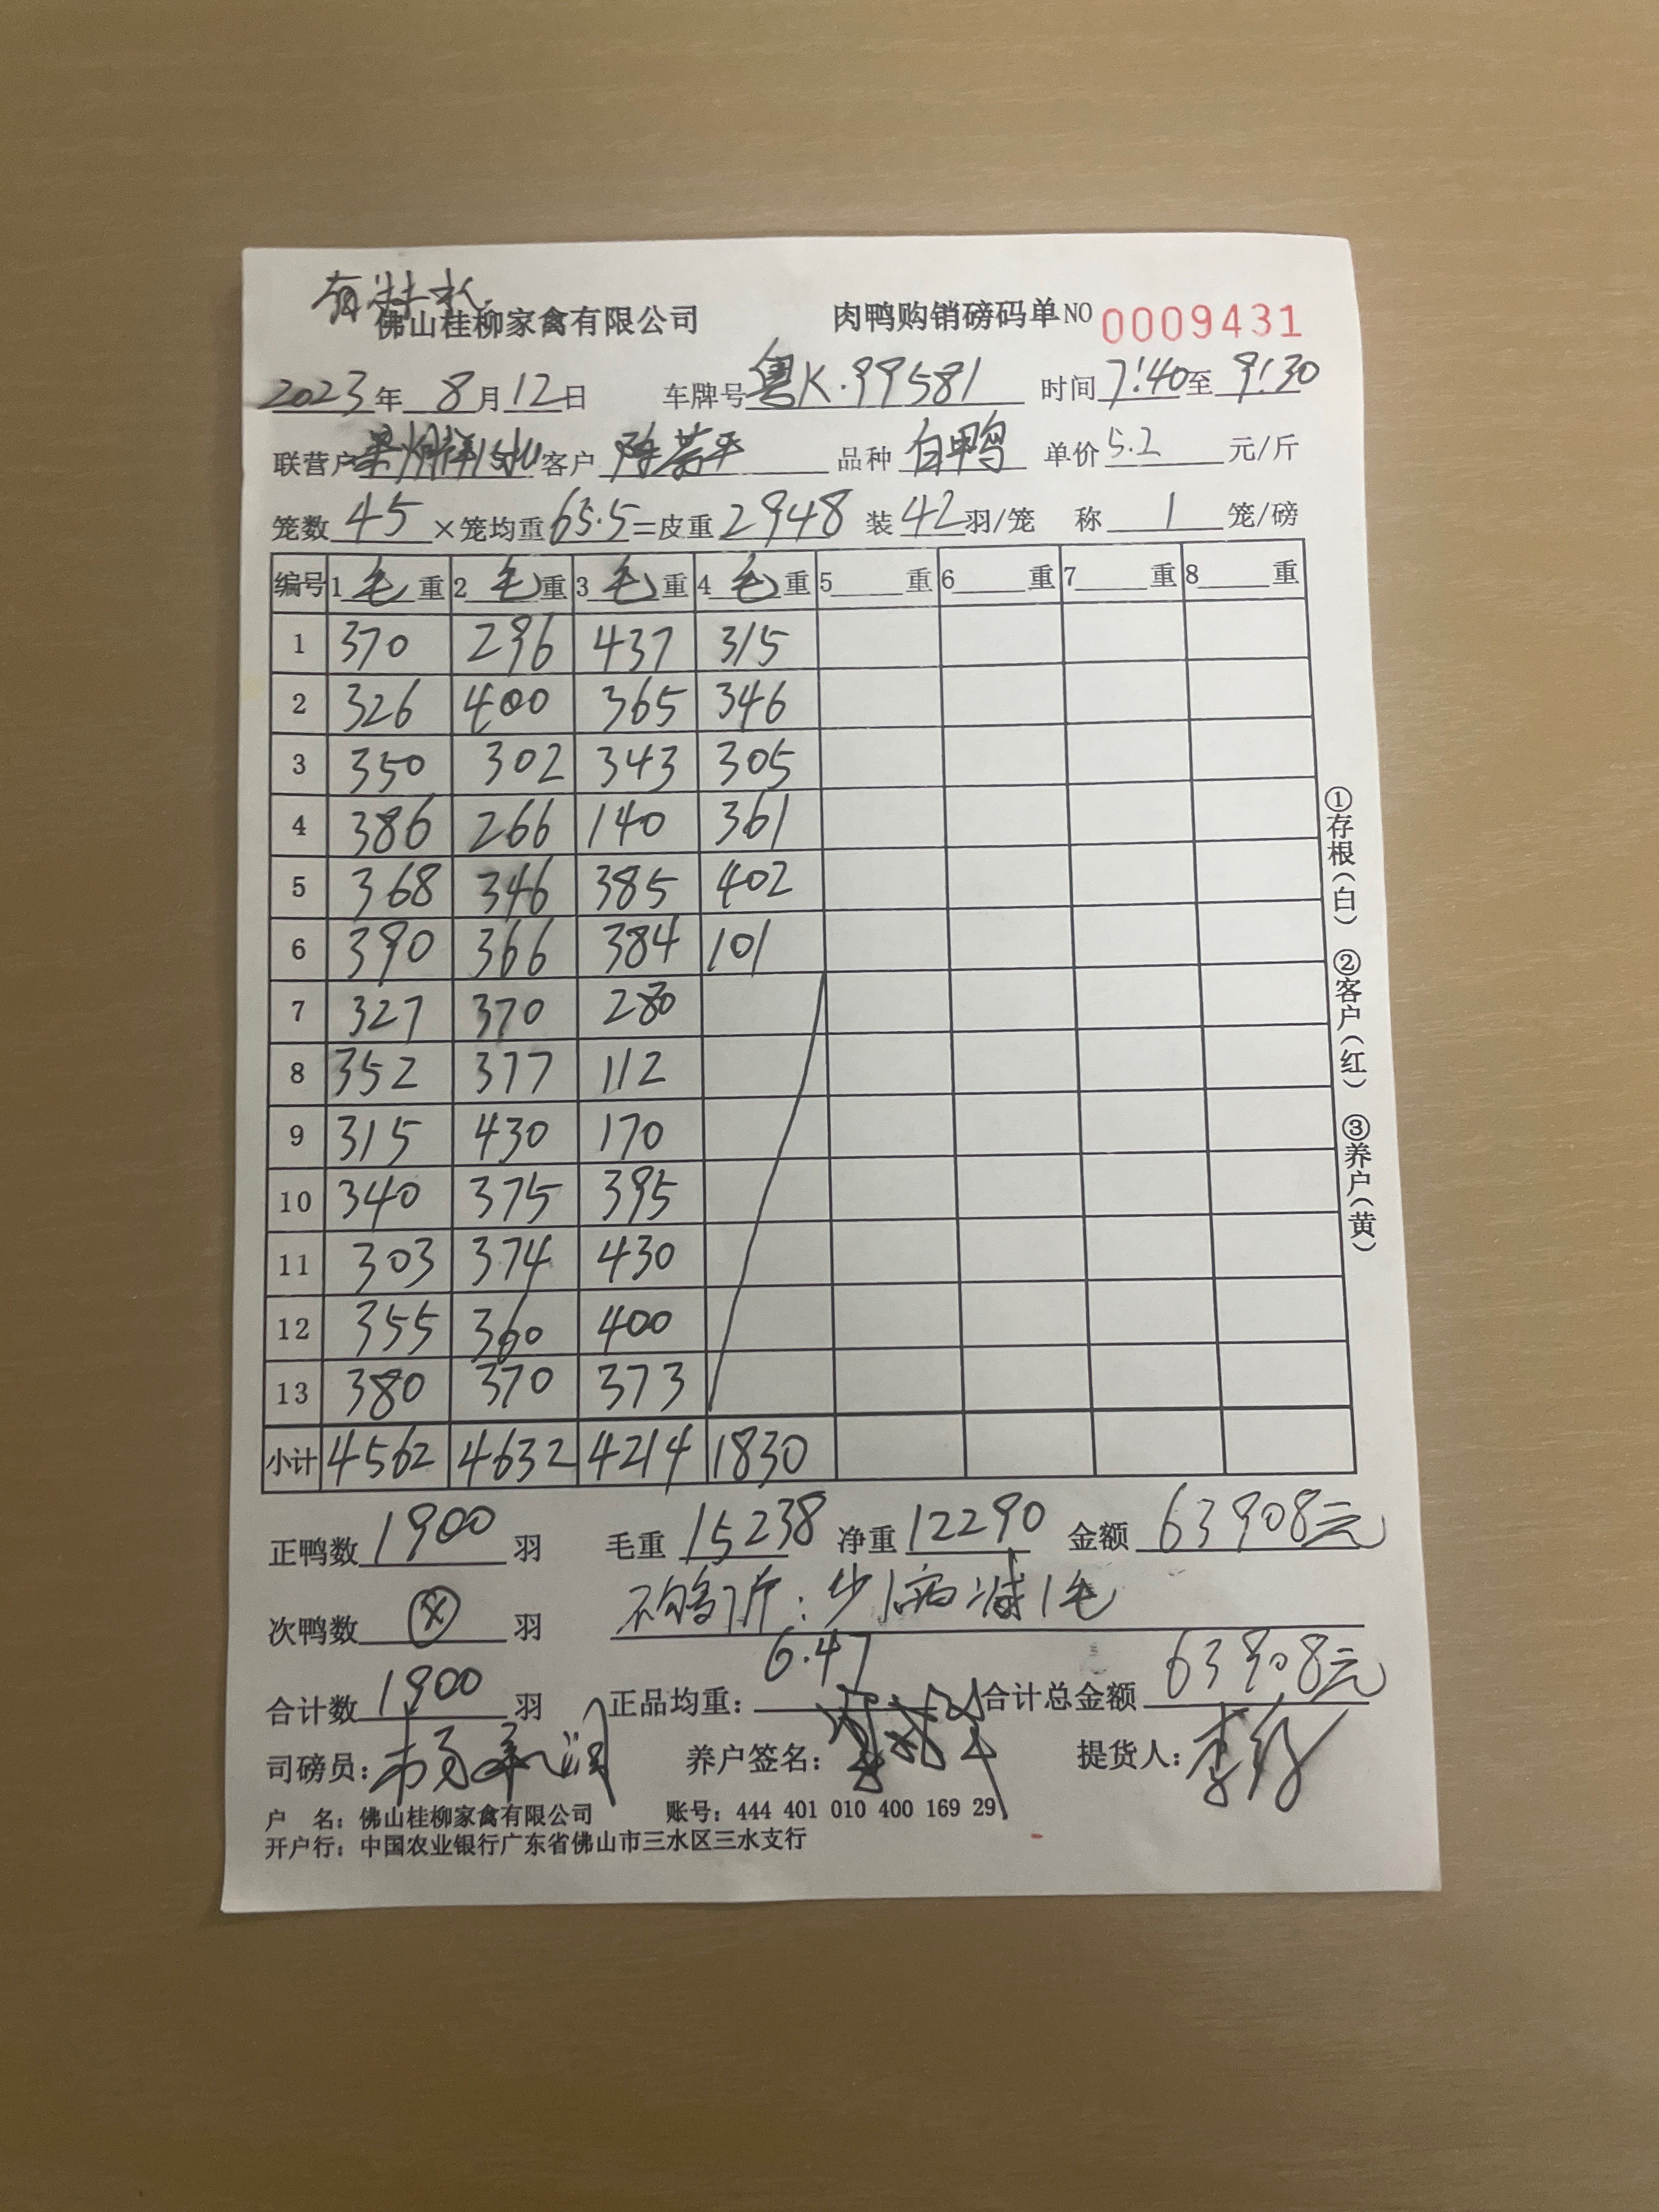 佛山桂柳家禽有限公司 肉鸭购销磅码单 NO 0009431
2023年 8月12日 车牌号 粤K.99581 时间 7:40 至 9:30
联营户 客户 陈芳平 品种 白鸭 单价 5.2 元/斤
笼数 45 ×笼均重 65.5 =皮重 2948 装 42 羽/笼 称 1 笼/磅
编号 1 毛 重 2 毛 重 3 毛 重 4 毛 重 5 重 6 重 7 重 8 重
1 370 296 437 315
2 326 400 365 346
3 350 302 343 305
4 386 266 140 361
5 368 346 385 402
6 390 366 384 101
7 327 370 280
8 352 377 112
9 315 430 170
10 340 375 395
11 303 374 430
12 355 360 400
13 380 370 373
小计 4562 4632 4214 1830
正鸭数 1900 羽 毛重 15238 净重 12290 金额 63908元
次鸭数 羽 不够 斤: 少1 减1毛
合计数 1900 羽 正品均重: 6.47 合计总金额 63908元
司磅员: 养户签名: 提货人: 李
户 名: 佛山桂柳家禽有限公司 账号: 444 401 010 400 169 29
开户行: 中国农业银行广东省佛山市三水区三水支行
①存根(白) ②客户(红) ③养户(黄)